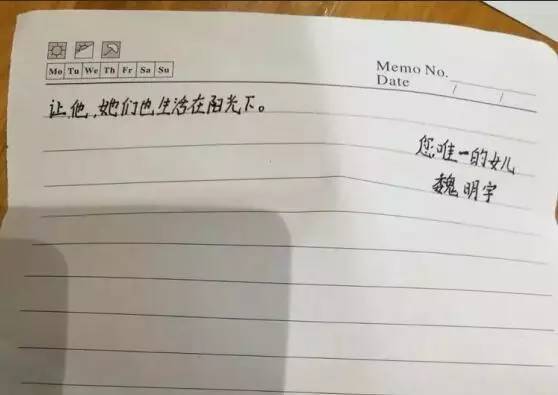 Memo No.
Mo Tu We Th Fr Sa Su
Date / /
让他,她们也生活在阳光下。
您唯一的女儿
魏明宇